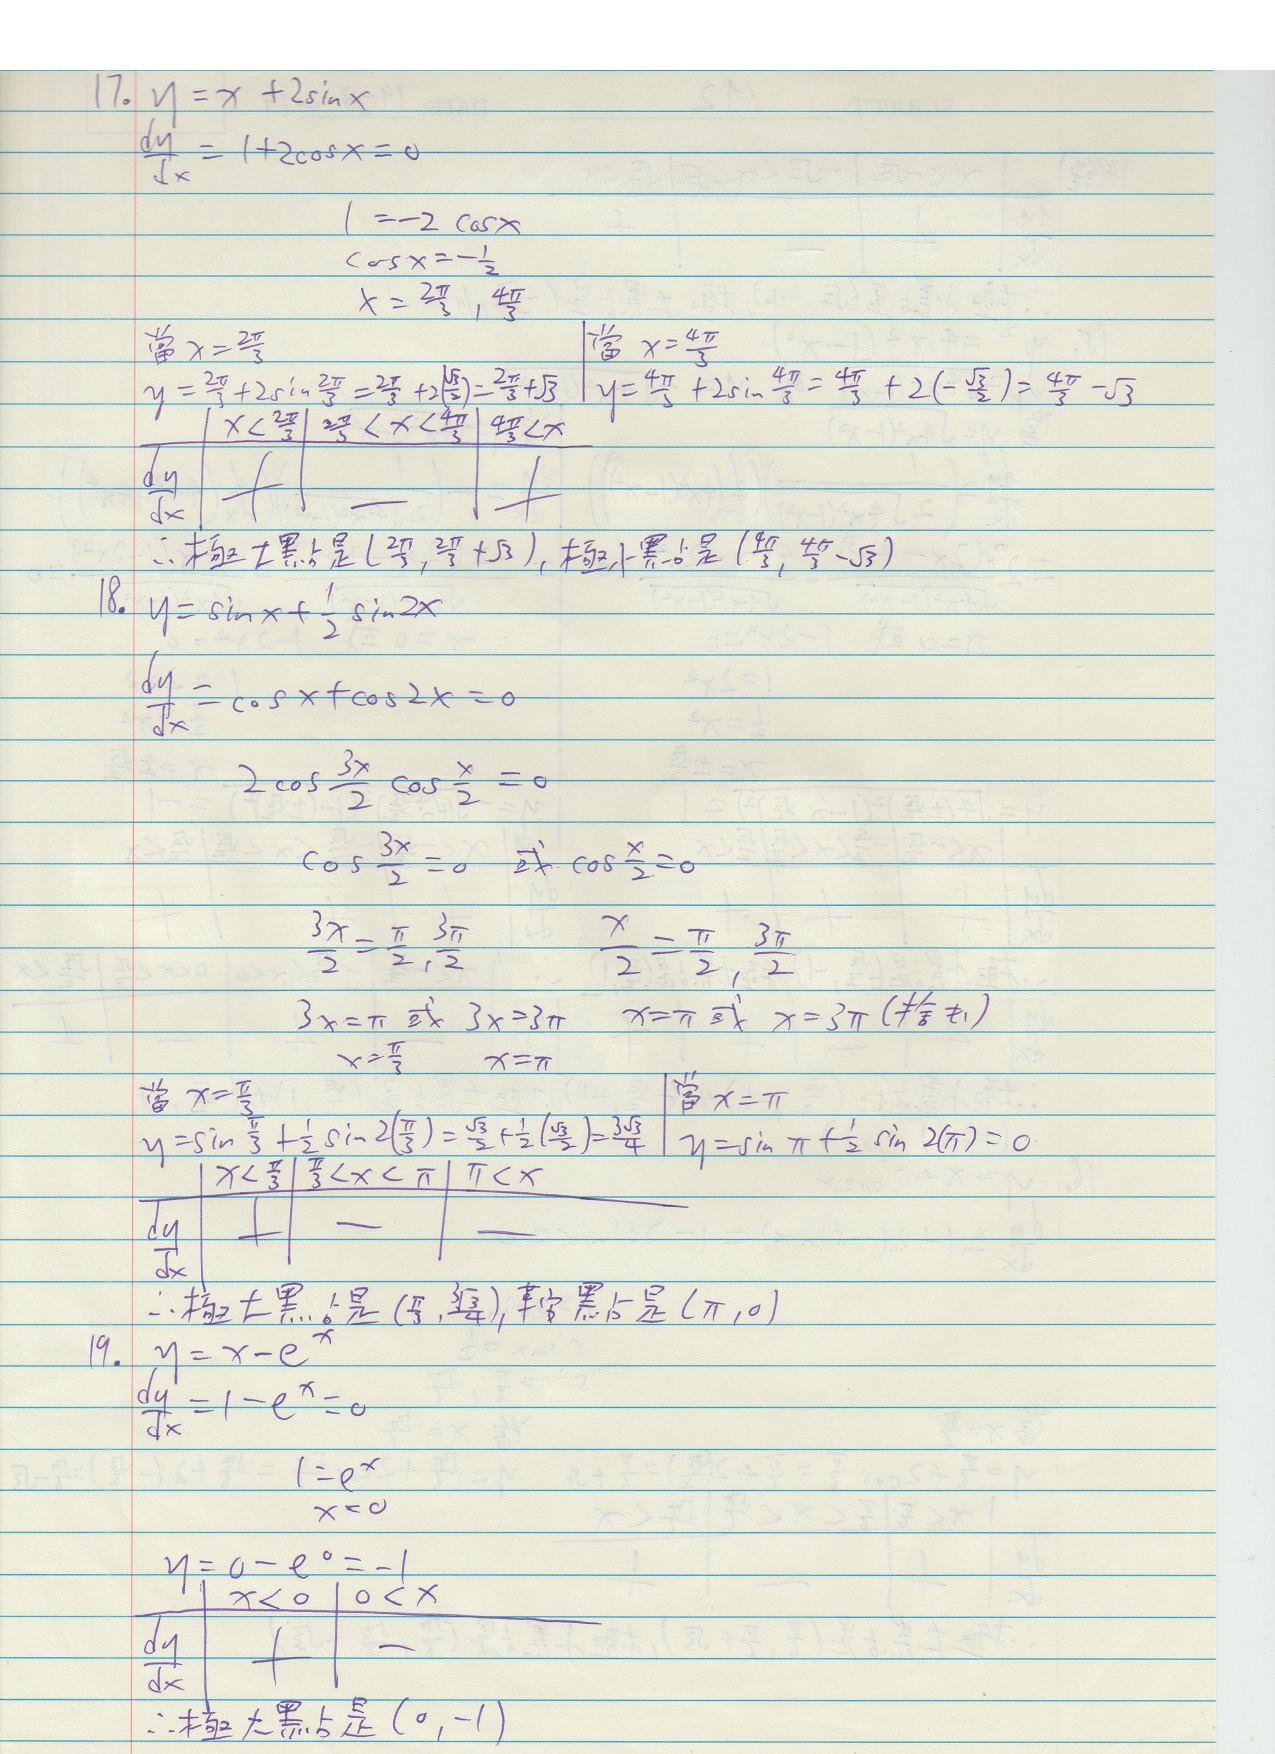 17. y = x + 2sinx
dy/dx = 1+2cosx = 0
1 = -2 cosx
cosx = -1/2
x = 2π/3, 4π/3
當 x = 2π/3
y = 2π/3 + 2sin 2π/3 = 2π/3 + 2(√3/2) = 2π/3 + √3
當 x = 4π/3
y = 4π/3 + 2sin 4π/3 = 4π/3 + 2(-√3/2) = 4π/3 - √3
x < 2π/3 | 2π/3 < x < 4π/3 | 4π/3 < x
dy/dx | + | - | +
∴極大點是(2π/3, 2π/3 + √3), 極小點是(4π/3, 4π/3 - √3)
18. y = sinx + 1/2 sin2x
dy/dx = cosx + cos2x = 0
2 cos 3x/2 cos x/2 = 0
cos 3x/2 = 0 或 cos x/2 = 0
3x/2 = π/2, 3π/2 x/2 = π/2, 3π/2
3x = π 或 3x = 3π x = π 或 x = 3π
x = π/3 x = π
當 x = π/3
y = sin π/3 + 1/2 sin 2(π/3) = √3/2 + 1/2(√3/2) = 3√3/4
當 x = π
y = sin π + 1/2 sin 2(π) = 0
x < π/3 | π/3 < x < π | π < x
dy/dx | + | - | -
∴極大點是(π/3, 3√3/4), 點是(π, 0)
19. y = x - e^x
dy/dx = 1 - e^x = 0
1 = e^x
x = 0
y = 0 - e^0 = -1
x < 0 | 0 < x
dy/dx | + | -
∴極大點是(0, -1)